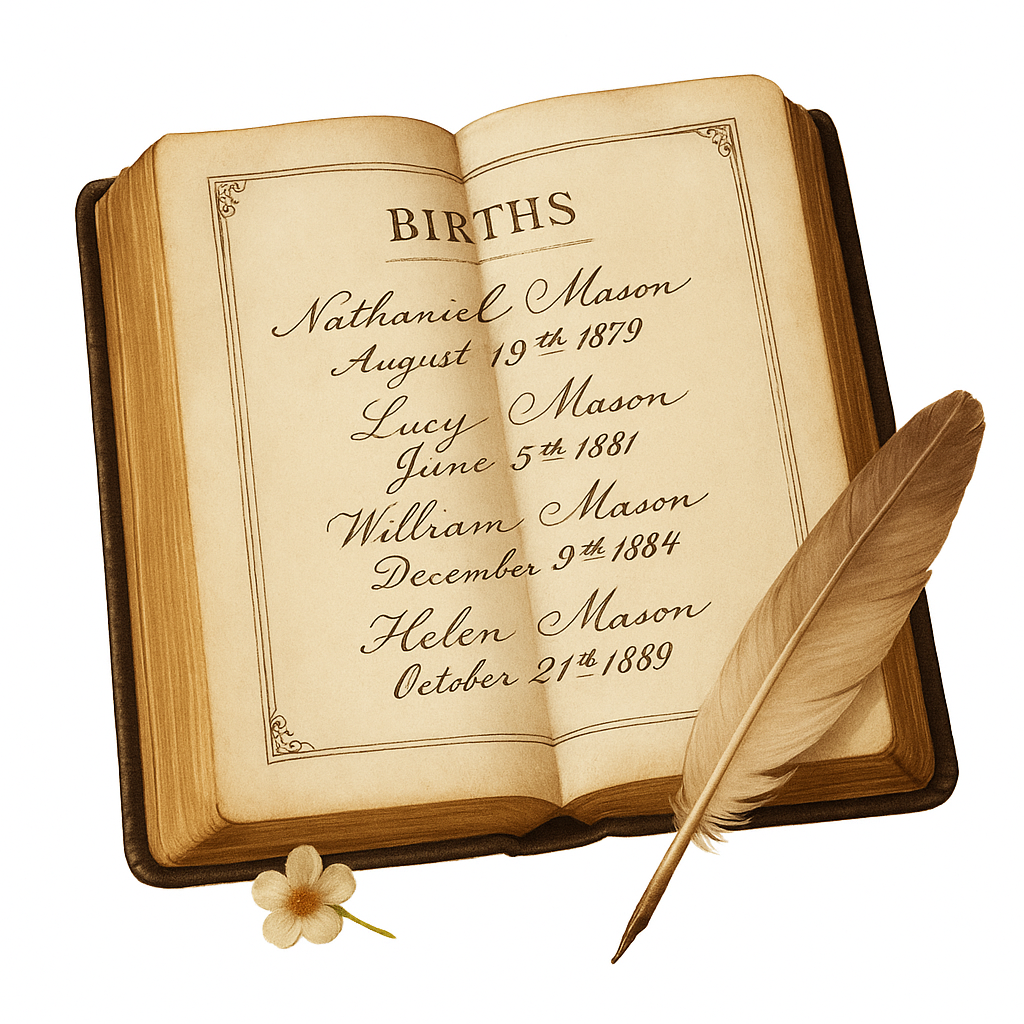 BIRTHS
Nathaniel Mason
August 19th 1879
Lucy Mason
June 5th 1881
William Mason
December 9th 1884
Helen Mason
October 21th 1889